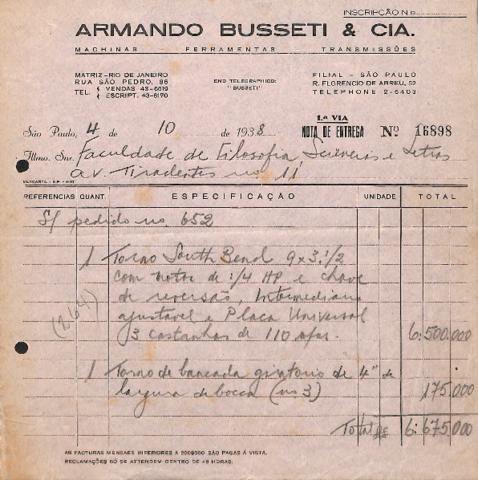 INSCRIPÇÃO N.o
ARMANDO BUSSETI & CIA.
MACHINAS FERRAMENTAS TRANSMISSÕES
MATRIZ - RIO DE JANEIRO
RUA SÃO PEDRO, 86
TEL. { VENDAS 43-6619
ESCRIPT. 43-8170
END. TELEGRAPHICO:
"BUSSETI"
FILIAL - SÃO PAULO
R. FLORENCIO DE ABREU, 52
TELEPHONE 2-6403
1.a VIA
São Paulo, 4 de 10 de 1938 NOTA DE ENTREGA Nº 16898
Illmo. Snr. Faculdade de Filosofia, Sciencias e Letras
av. Tiradentes no. 11
REFERENCIAS QUANT. ESPECIFICAÇÃO UNIDADE TOTAL
S/ pedido no. 652
1 Torno South Bend 9x3.1/2
com motor de 1/4 HP e chave
de reversão, Intermediario
ajustavel e Placa Universal
3 castanhas de 110 6:500.000
1 Torno de bancada giratorio de 4" de
largura de bocca (no 3) 175.000
Total Rs 6:675.000
AS FACTURAS MENSAES INFERIORES A 200$000 SÃO PAGAS Á VISTA.
RECLAMAÇÕES SÓ SE ATTENDEM DENTRO DE 48 HORAS.